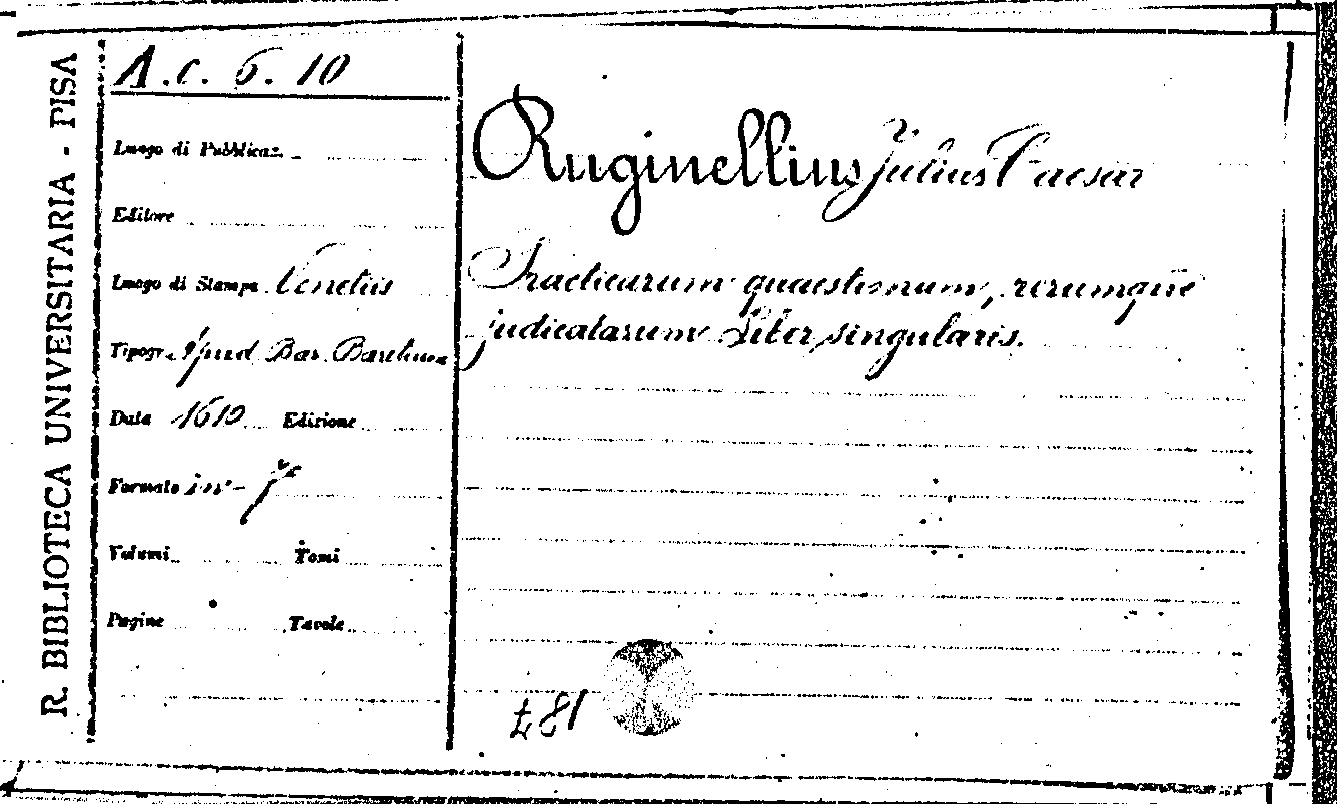 R. BIBLIOTECA UNIVERSITARIA - PISA
A.c. 6. 10
Luogo di Pubblicaz.
Editore
Luogo di Stampa Venetiis
Tipogr. Apud Bar. Baretium
Data 1610 Edizione
Formato in-f°
Volumi Tomi
Pagine Tavole
Ruginellius Julius Caesar
Practicarum quaestionum, rerumque
judicatarum Liber singularis.